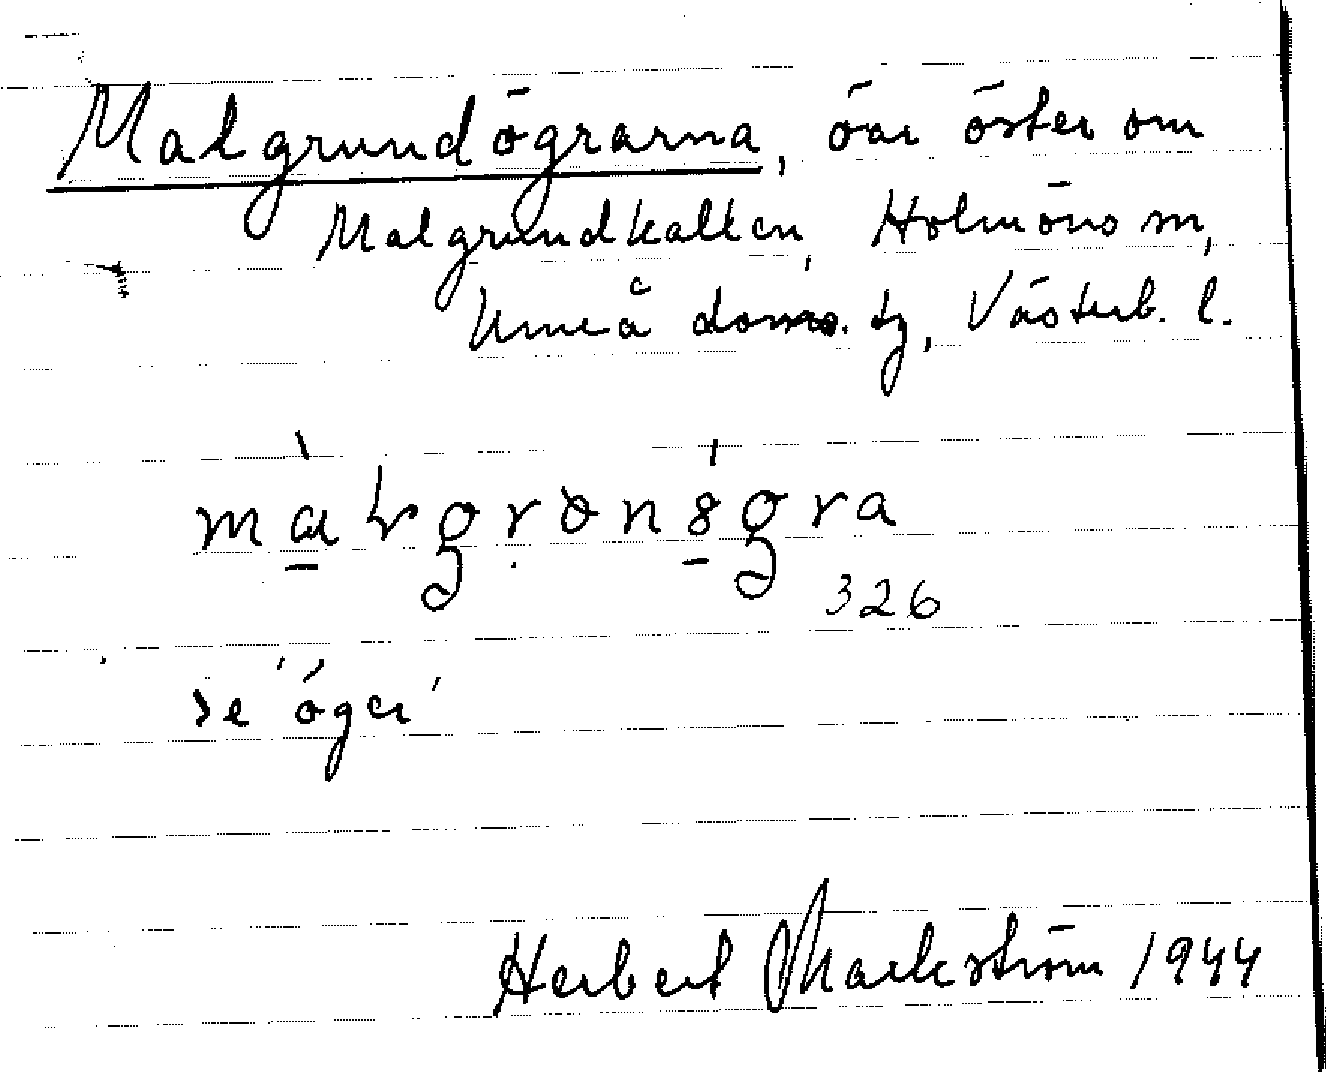 Malgrundögrarna, öar öster om
Malgrundkallen, Holmöns sn,
Umeå doms. tg, Västerb. l.
326
se 'öger'
Herbert Markström 1944